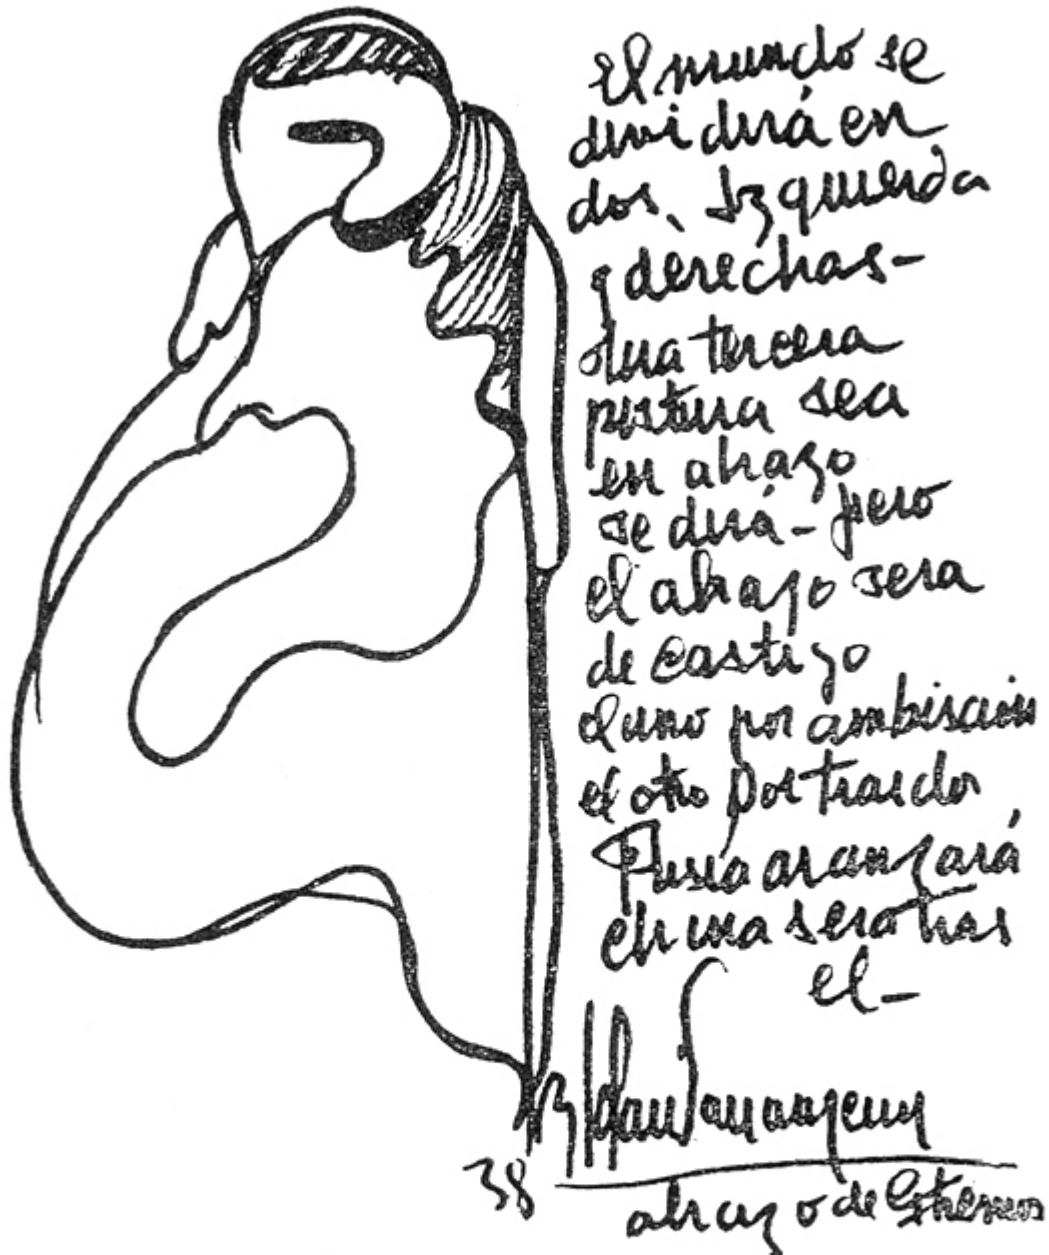 El mundo se
dividirá en
dos, Izquierda
y derechas-
Una tercera
postura sea
en abrazo
se dirá - pero
el abrazo sera
de castigo
el uno por ambiscion
el otro por traidor
Rusia avanzará
en una sera tras
el-
B Solari Parravicini
38
abrazo de Extremos